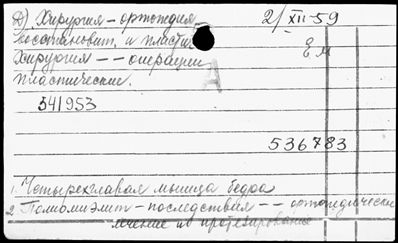 д) Хирургия – ортопедия 2/XII-59
восстановит. и пластич
Хирургия – – операции Ем
пластические. А
541953
536783
1. Четырехглавая мышца бедра
2. Полиомиэлит – последствия – – ортопедическое
лечение и протезирование